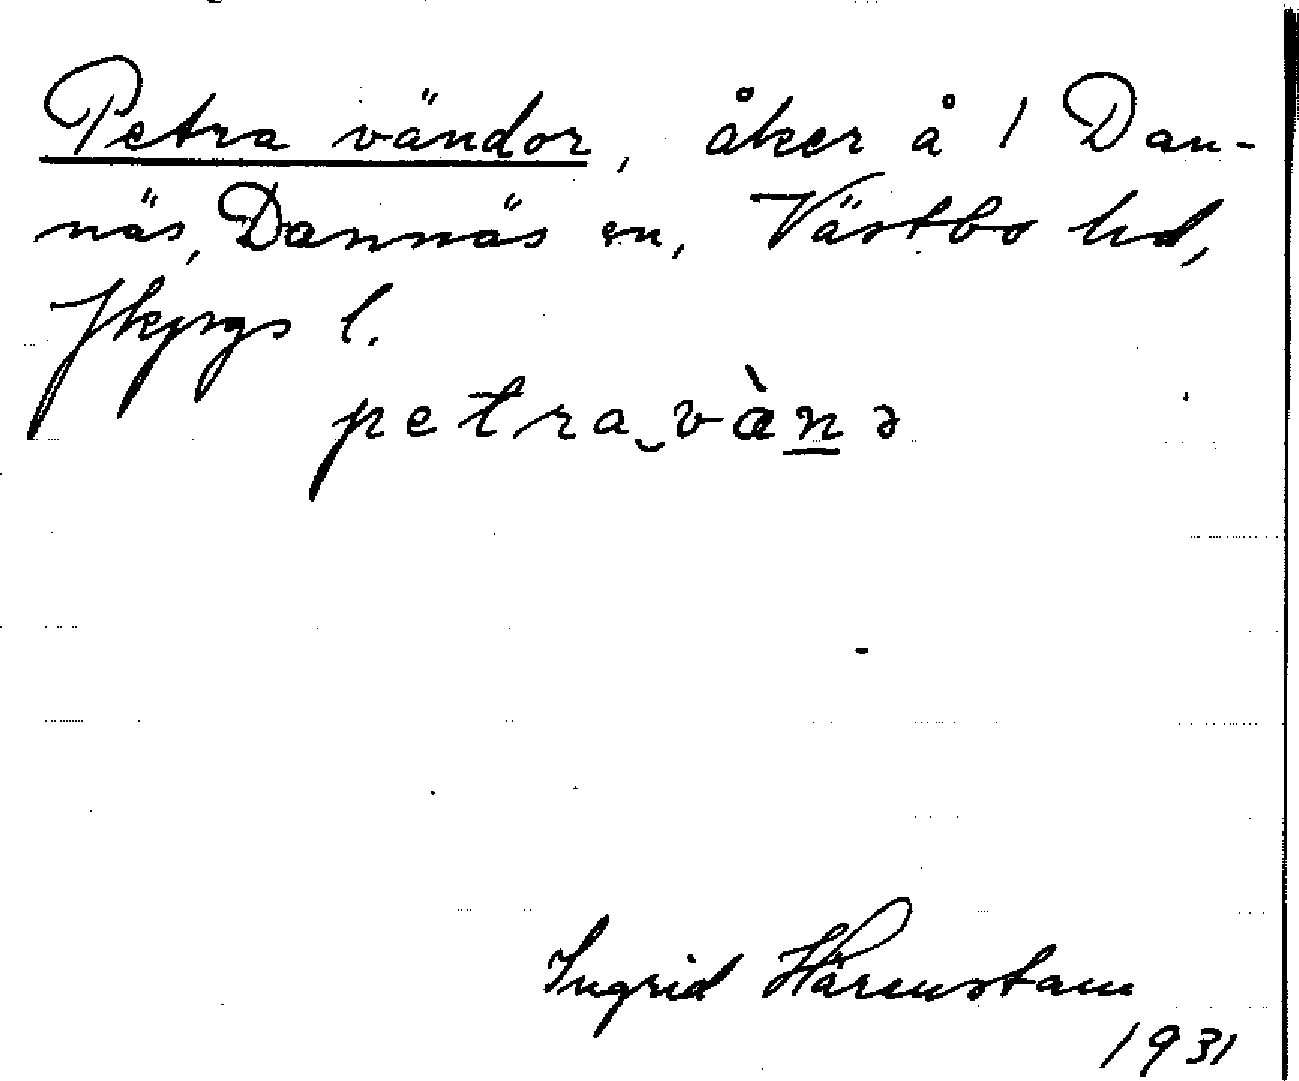 Petra vändor, åker å 1 Dan-
näs, Dannäs sn, Västbo hd,
Jkpgs l.
petra‿vàn̲ə
Ingrid Härenstam
1931